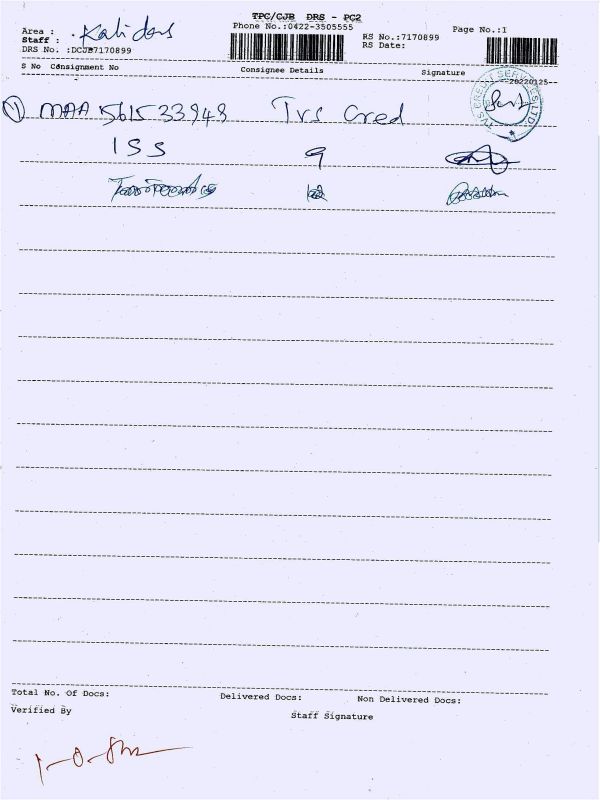 TPC/CJB DRS - PC2
Area :
Staff : Kalidas
DRS No. :DCJB7170899
Phone No.:0422-3505555
RS No.:7170899
RS Date:
Page No.:1
S No Consignment No Consignee Details Signature --20220125--
1 MAA 561533949 Tvs Cred
TVS CREDIT SERVICES LTD.
ISS 9
Total No. Of Docs: Delivered Docs: Non Delivered Docs:
Verified By Staff Signature